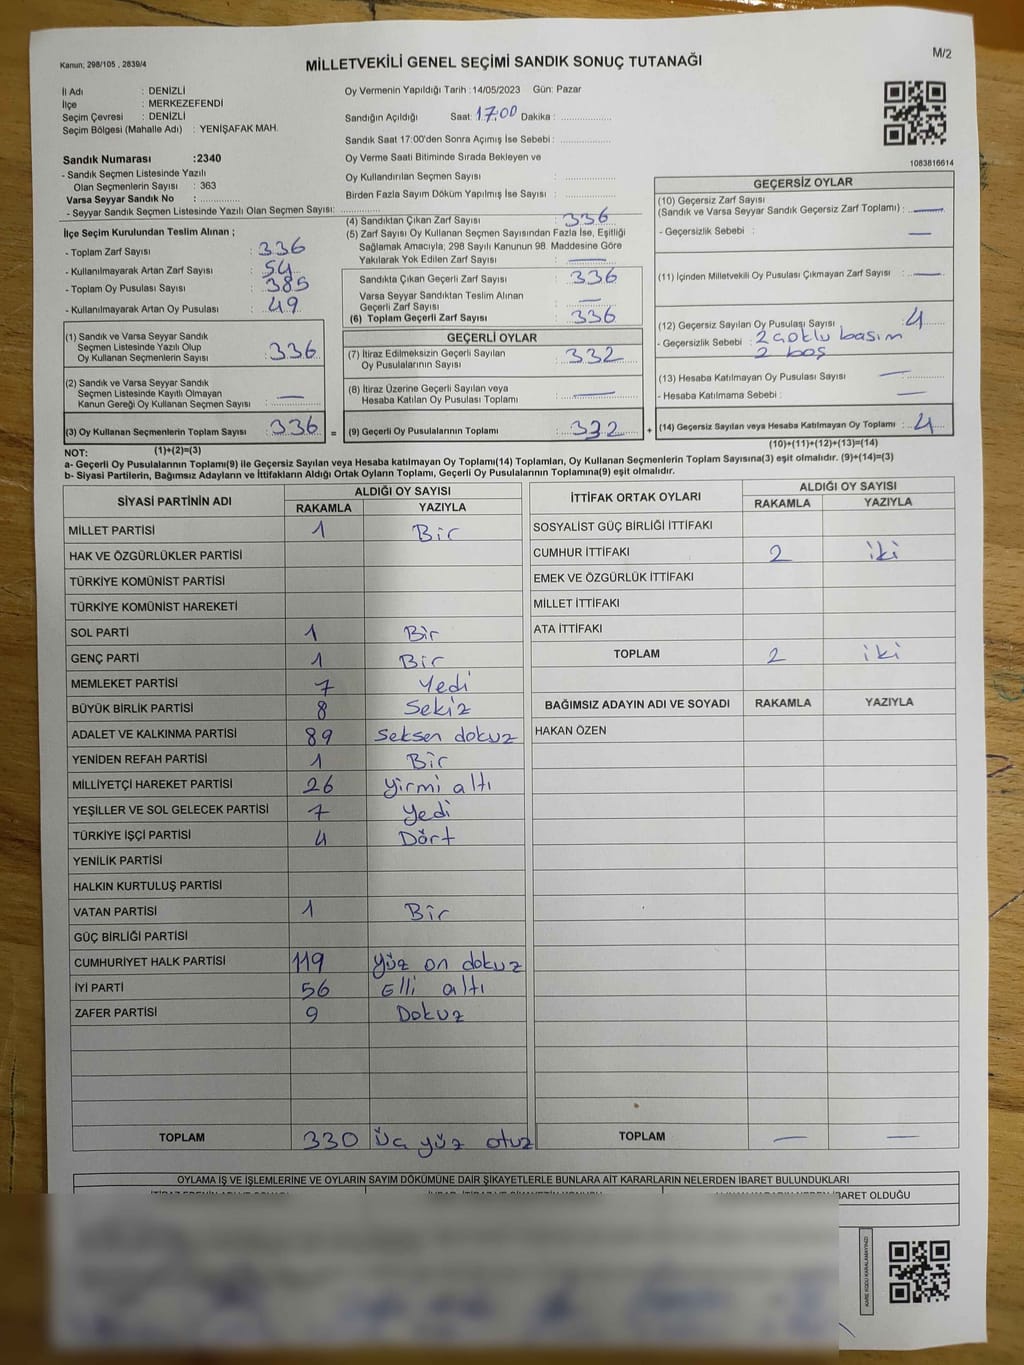 Kanun; 298/105 , 2839/4
MİLLETVEKİLİ GENEL SEÇİMİ SANDIK SONUÇ TUTANAĞI
M/2
İl Adı : DENİZLİ
İlçe : MERKEZEFENDİ
Seçim Çevresi : DENİZLİ
Seçim Bölgesi (Mahalle Adı) : YENİŞAFAK MAH.
Sandık Numarası :2340
- Sandık Seçmen Listesinde Yazılı
Olan Seçmenlerin Sayısı : 363
Varsa Seyyar Sandık No : ..............
- Seyyar Sandık Seçmen Listesinde Yazılı Olan Seçmen Sayısı: ..............
İlçe Seçim Kurulundan Teslim Alınan ;
- Toplam Zarf Sayısı : 336
- Kullanılmayarak Artan Zarf Sayısı : 54
- Toplam Oy Pusulası Sayısı : 385
- Kullanılmayarak Artan Oy Pusulası : 49
(1) Sandık ve Varsa Seyyar Sandık
Seçmen Listesinde Yazılı Olup
Oy Kullanan Seçmenlerin Sayısı : 336
(2) Sandık ve Varsa Seyyar Sandık
Seçmen Listesinde Kayıtlı Olmayan
Kanun Gereği Oy Kullanan Seçmen Sayısı : —
(3) Oy Kullanan Seçmenlerin Toplam Sayısı : 336 =
(1)+(2)=(3)
Oy Vermenin Yapıldığı Tarih :14/05/2023 Gün: Pazar
Sandığın Açıldığı Saat: 17:00 Dakika : ..............
Sandık Saat 17:00'den Sonra Açımış İse Sebebi : ..............
Oy Verme Saati Bitiminde Sırada Bekleyen ve
Oy Kullandırılan Seçmen Sayısı : ..............
Birden Fazla Sayım Döküm Yapılmış İse Sayısı : ..............
(4) Sandıktan Çıkan Zarf Sayısı : 336
(5) Zarf Sayısı Oy Kullanan Seçmen Sayısından Fazla İse, Eşitliği
Sağlamak Amacıyla; 298 Sayılı Kanunun 98. Maddesine Göre
Yakılarak Yok Edilen Zarf Sayısı : —
Sandıkta Çıkan Geçerli Zarf Sayısı : 336
Varsa Seyyar Sandıktan Teslim Alınan
Geçerli Zarf Sayısı : —
(6) Toplam Geçerli Zarf Sayısı : 336
GEÇERLİ OYLAR
(7) İtiraz Edilmeksizin Geçerli Sayılan
Oy Pusulalarının Sayısı : 332
(8) İtiraz Üzerine Geçerli Sayılan veya
Hesaba Katılan Oy Pusulası Toplamı : —
(9) Geçerli Oy Pusulalarının Toplamı : 332 +
1083816614
GEÇERSİZ OYLAR
(10) Geçersiz Zarf Sayısı
(Sandık ve Varsa Seyyar Sandık Geçersiz Zarf Toplamı) : —
- Geçersizlik Sebebi : —
(11) İçinden Milletvekili Oy Pusulası Çıkmayan Zarf Sayısı : —
(12) Geçersiz Sayılan Oy Pusulası Sayısı : 4
- Geçersizlik Sebebi : 2 çoklu basım
2 boş
(13) Hesaba Katılmayan Oy Pusulası Sayısı : —
- Hesaba Katılmama Sebebi : —
(14) Geçersiz Sayılan veya Hesaba Katılmayan Oy Toplamı : 4
(10)+(11)+(12)+(13)=(14)
NOT:
a- Geçerli Oy Pusulalarının Toplamı(9) ile Geçersiz Sayılan veya Hesaba katılmayan Oy Toplamı(14) Toplamları, Oy Kullanan Seçmenlerin Toplam Sayısına(3) eşit olmalıdır. (9)+(14)=(3)
b- Siyasi Partilerin, Bağımsız Adayların ve İttifakların Aldığı Ortak Oyların Toplamı, Geçerli Oy Pusulalarının Toplamına(9) eşit olmalıdır.
SİYASİ PARTİNİN ADI ALDIĞI OY SAYISI
RAKAMLA YAZIYLA
MİLLET PARTİSİ 1 Bir
HAK VE ÖZGÜRLÜKLER PARTİSİ
TÜRKİYE KOMÜNİST PARTİSİ
TÜRKİYE KOMÜNİST HAREKETİ
SOL PARTİ 1 Bir
GENÇ PARTİ 1 Bir
MEMLEKET PARTİSİ 7 Yedi
BÜYÜK BİRLİK PARTİSİ 8 Sekiz
ADALET VE KALKINMA PARTİSİ 89 Seksen dokuz
YENİDEN REFAH PARTİSİ 1 Bir
MİLLİYETÇİ HAREKET PARTİSİ 26 yirmi altı
YEŞİLLER VE SOL GELECEK PARTİSİ 7 yedi
TÜRKİYE İŞÇİ PARTİSİ 4 Dört
YENİLİK PARTİSİ
HALKIN KURTULUŞ PARTİSİ
VATAN PARTİSİ 1 Bir
GÜÇ BİRLİĞİ PARTİSİ
CUMHURİYET HALK PARTİSİ 119 yüz on dokuz
İYİ PARTİ 56 Elli altı
ZAFER PARTİSİ 9 Dokuz
TOPLAM 330 üç yüz otuz
İTTİFAK ORTAK OYLARI ALDIĞI OY SAYISI
RAKAMLA YAZIYLA
SOSYALİST GÜÇ BİRLİĞİ İTTİFAKI
CUMHUR İTTİFAKI 2 iki
EMEK VE ÖZGÜRLÜK İTTİFAKI
MİLLET İTTİFAKI
ATA İTTİFAKI
TOPLAM 2 iki
BAĞIMSIZ ADAYIN ADI VE SOYADI RAKAMLA YAZIYLA
HAKAN ÖZEN
TOPLAM — —
OYLAMA İŞ VE İŞLEMLERİNE VE OYLARIN SAYIM DÖKÜMÜNE DAİR ŞİKAYETLERLE BUNLARA AİT KARARLARIN NELERDEN İBARET BULUNDUKLARI
İBARET OLDUĞU
KARE KODU KARALAMAYINIZ!